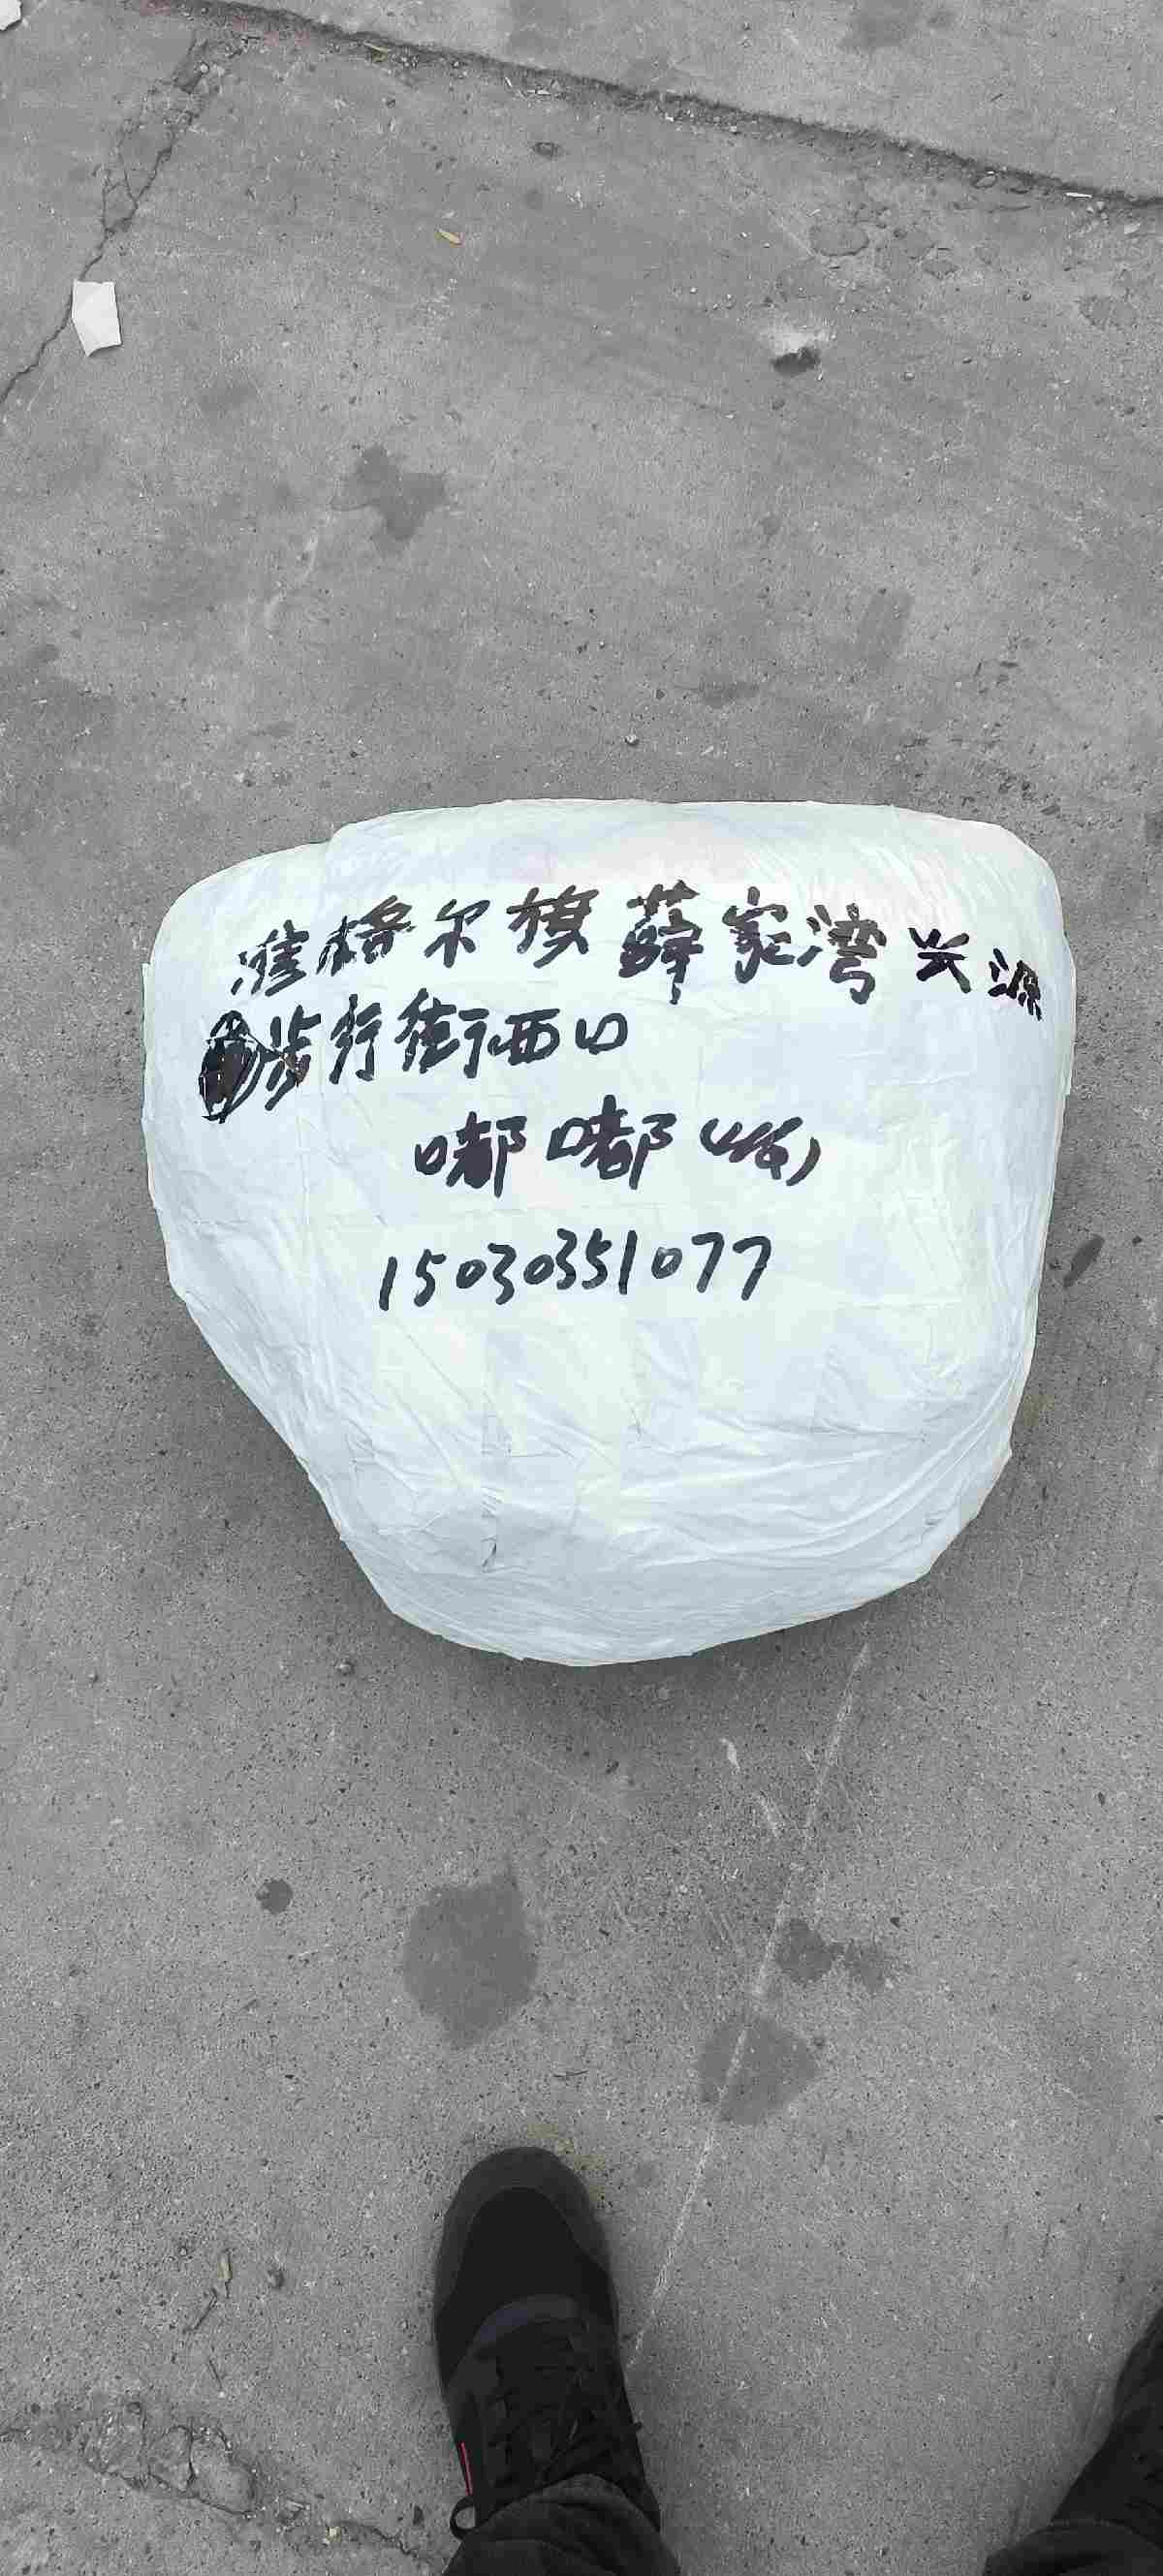 准格尔旗薛家湾兴源
步行街西口
嘟嘟
15030351077